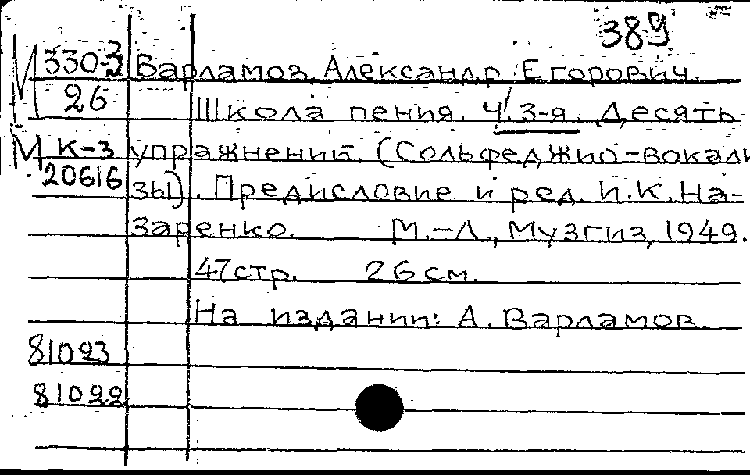 389
М 330-3 Варламов, Александр Егорович.
26 Школа пения. Ч. 3-я. Десять
М К-3 упражнений. (Сольфеджио-вокали
20616 зы). Предисловие и ред. И.К.На-
заренко. М.-Л., Музгиз, 1949.
47стр. 26см.
На издании: А. Варламов.
81023
81022